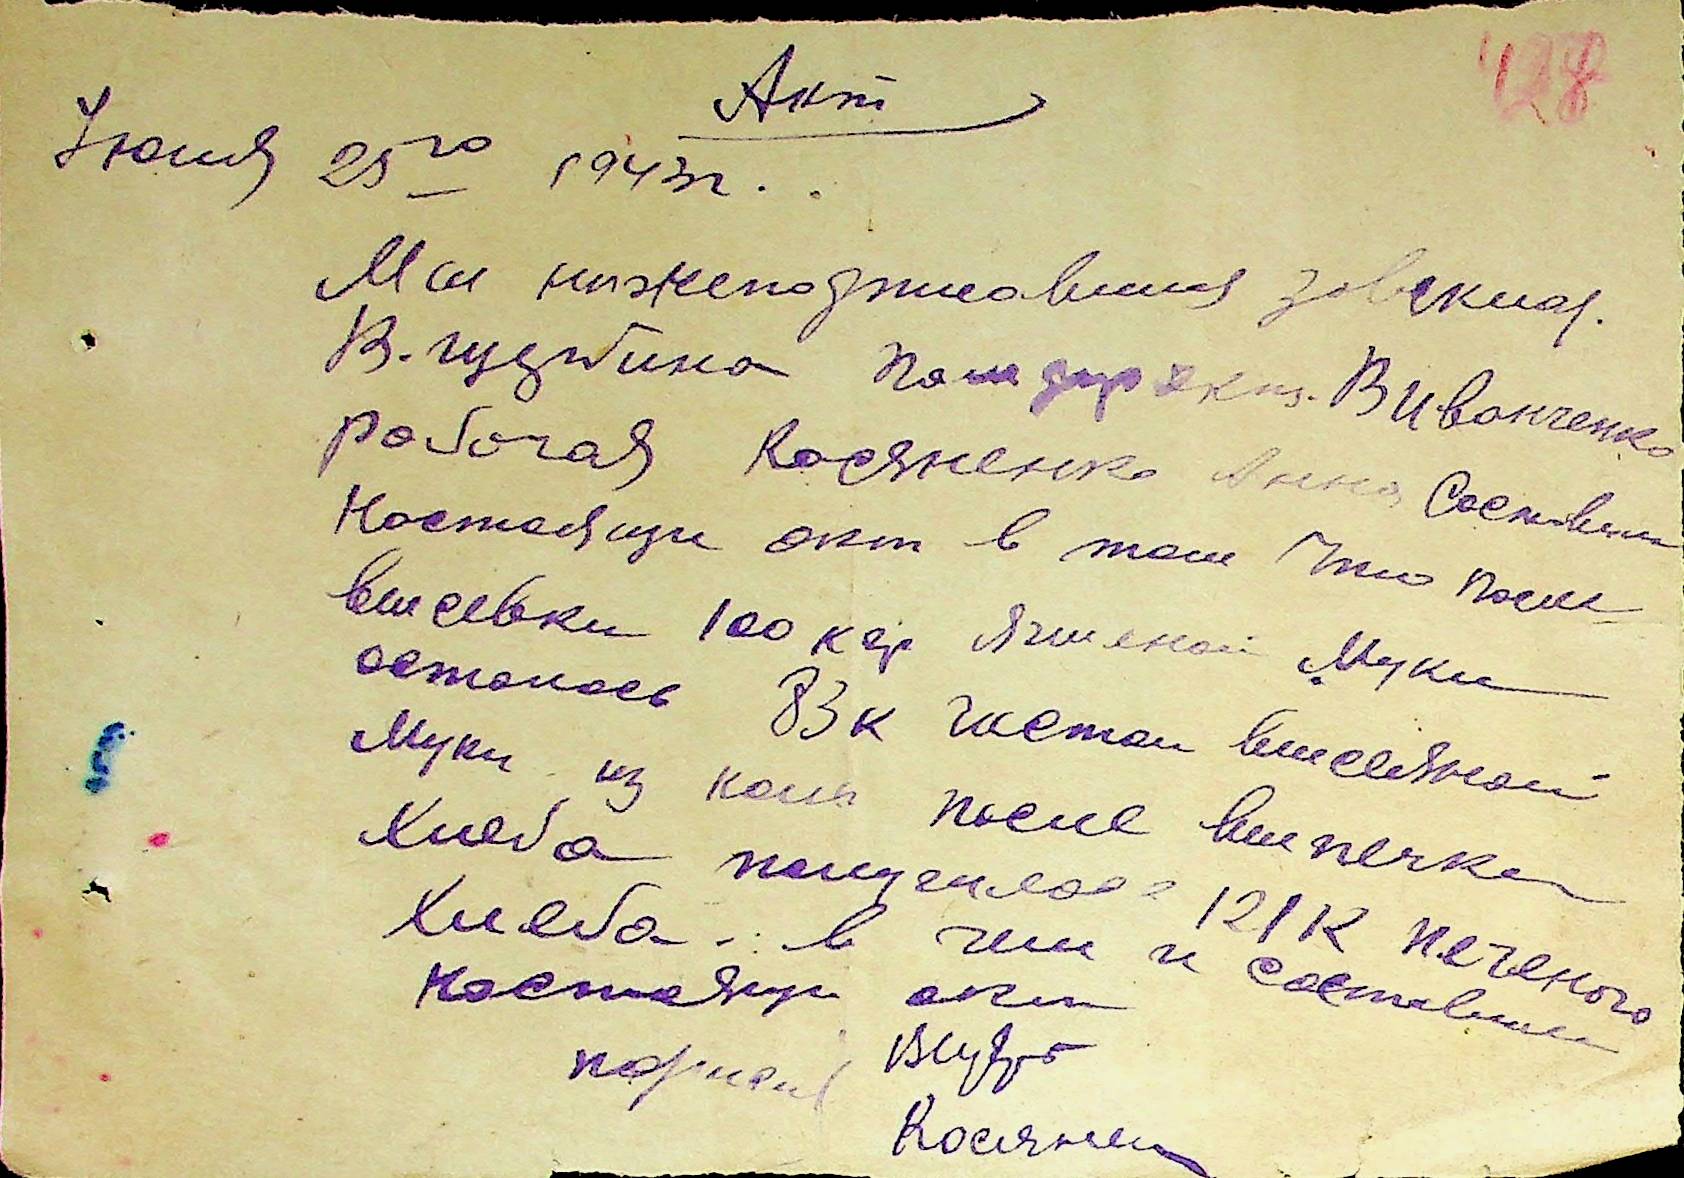 428
Акт
Июня 25го 1943г.
Мы нижеподписавшия
В. Пом дир В Иванченко
рабочая Косяненко Анна Составили
Настоящи акт в том Что после
высевки 100 кгр Ячменой Муки
осталось 83к чистой высеяной
Муки из коей после выпечки
Хлеба получилось 121к печеного
Хлеба. в чем и составили
Настоящи акт